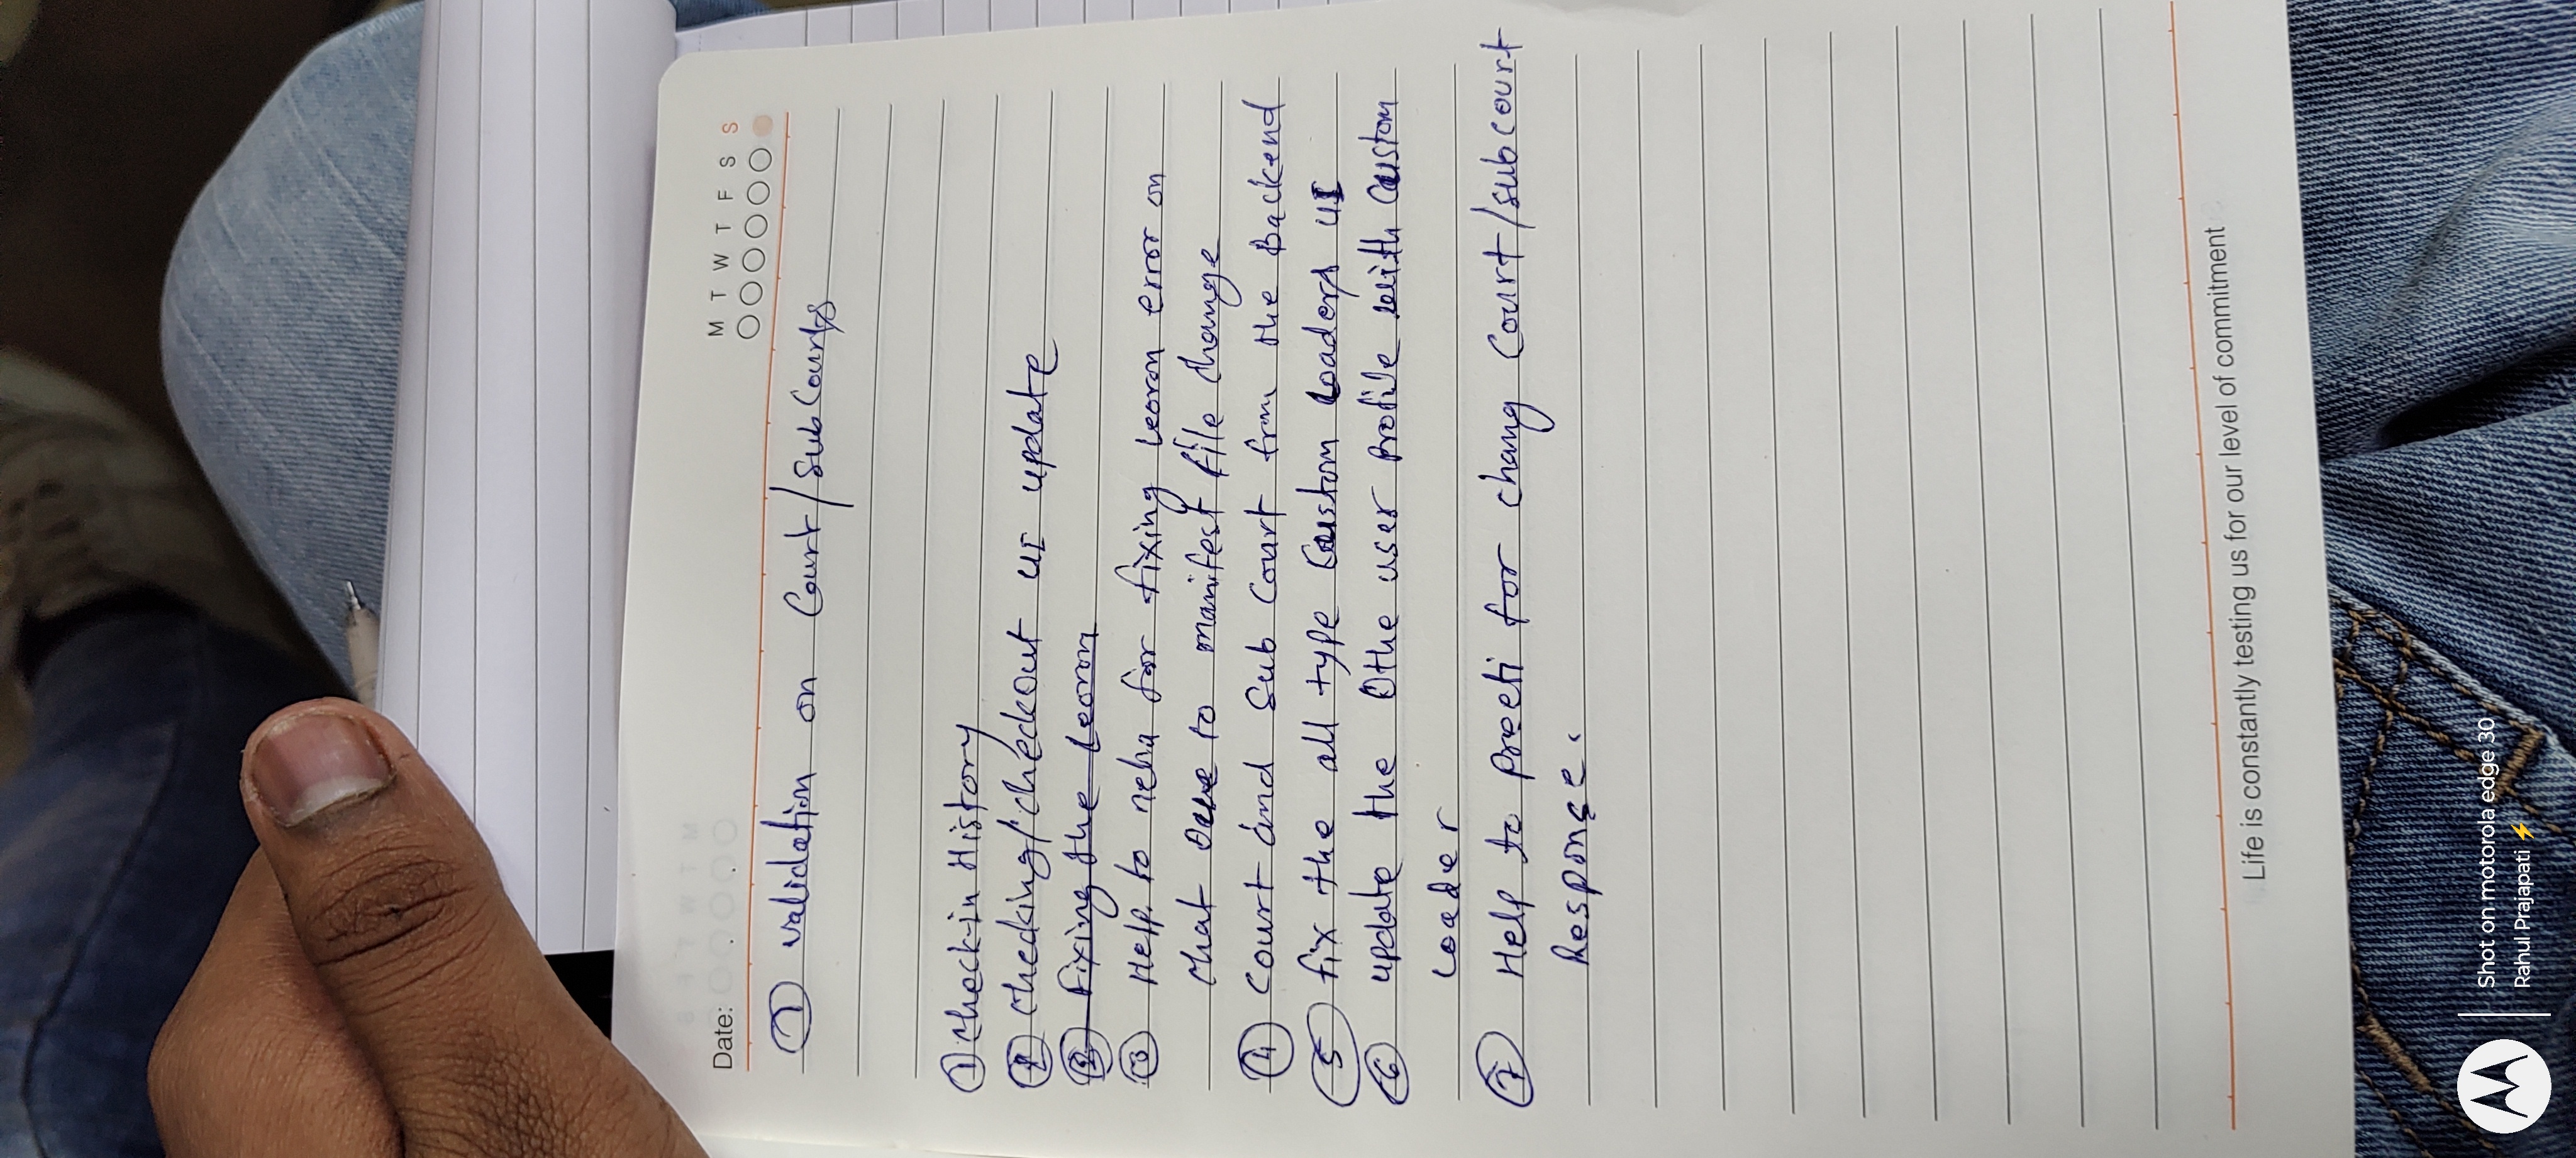 Date:
M T W T F S S
① validation on Court/SubCourts
① check-in History
② checking/checkout UI update
② fixing the leoron
③ Help to neha for fixing leoron error on
chat to manifest file change
④ Court and Sub Court from the Backend
⑤ fix the all type Custom Loaders UI
⑥ update the Othe user Profile with Custom
Loader
⑦ Help to Preeti for chang Court/subcourt
Response.
Life is constantly testing us for our level of commitment
Shot on motorola edge 30
Rahul Prajapati ⚡